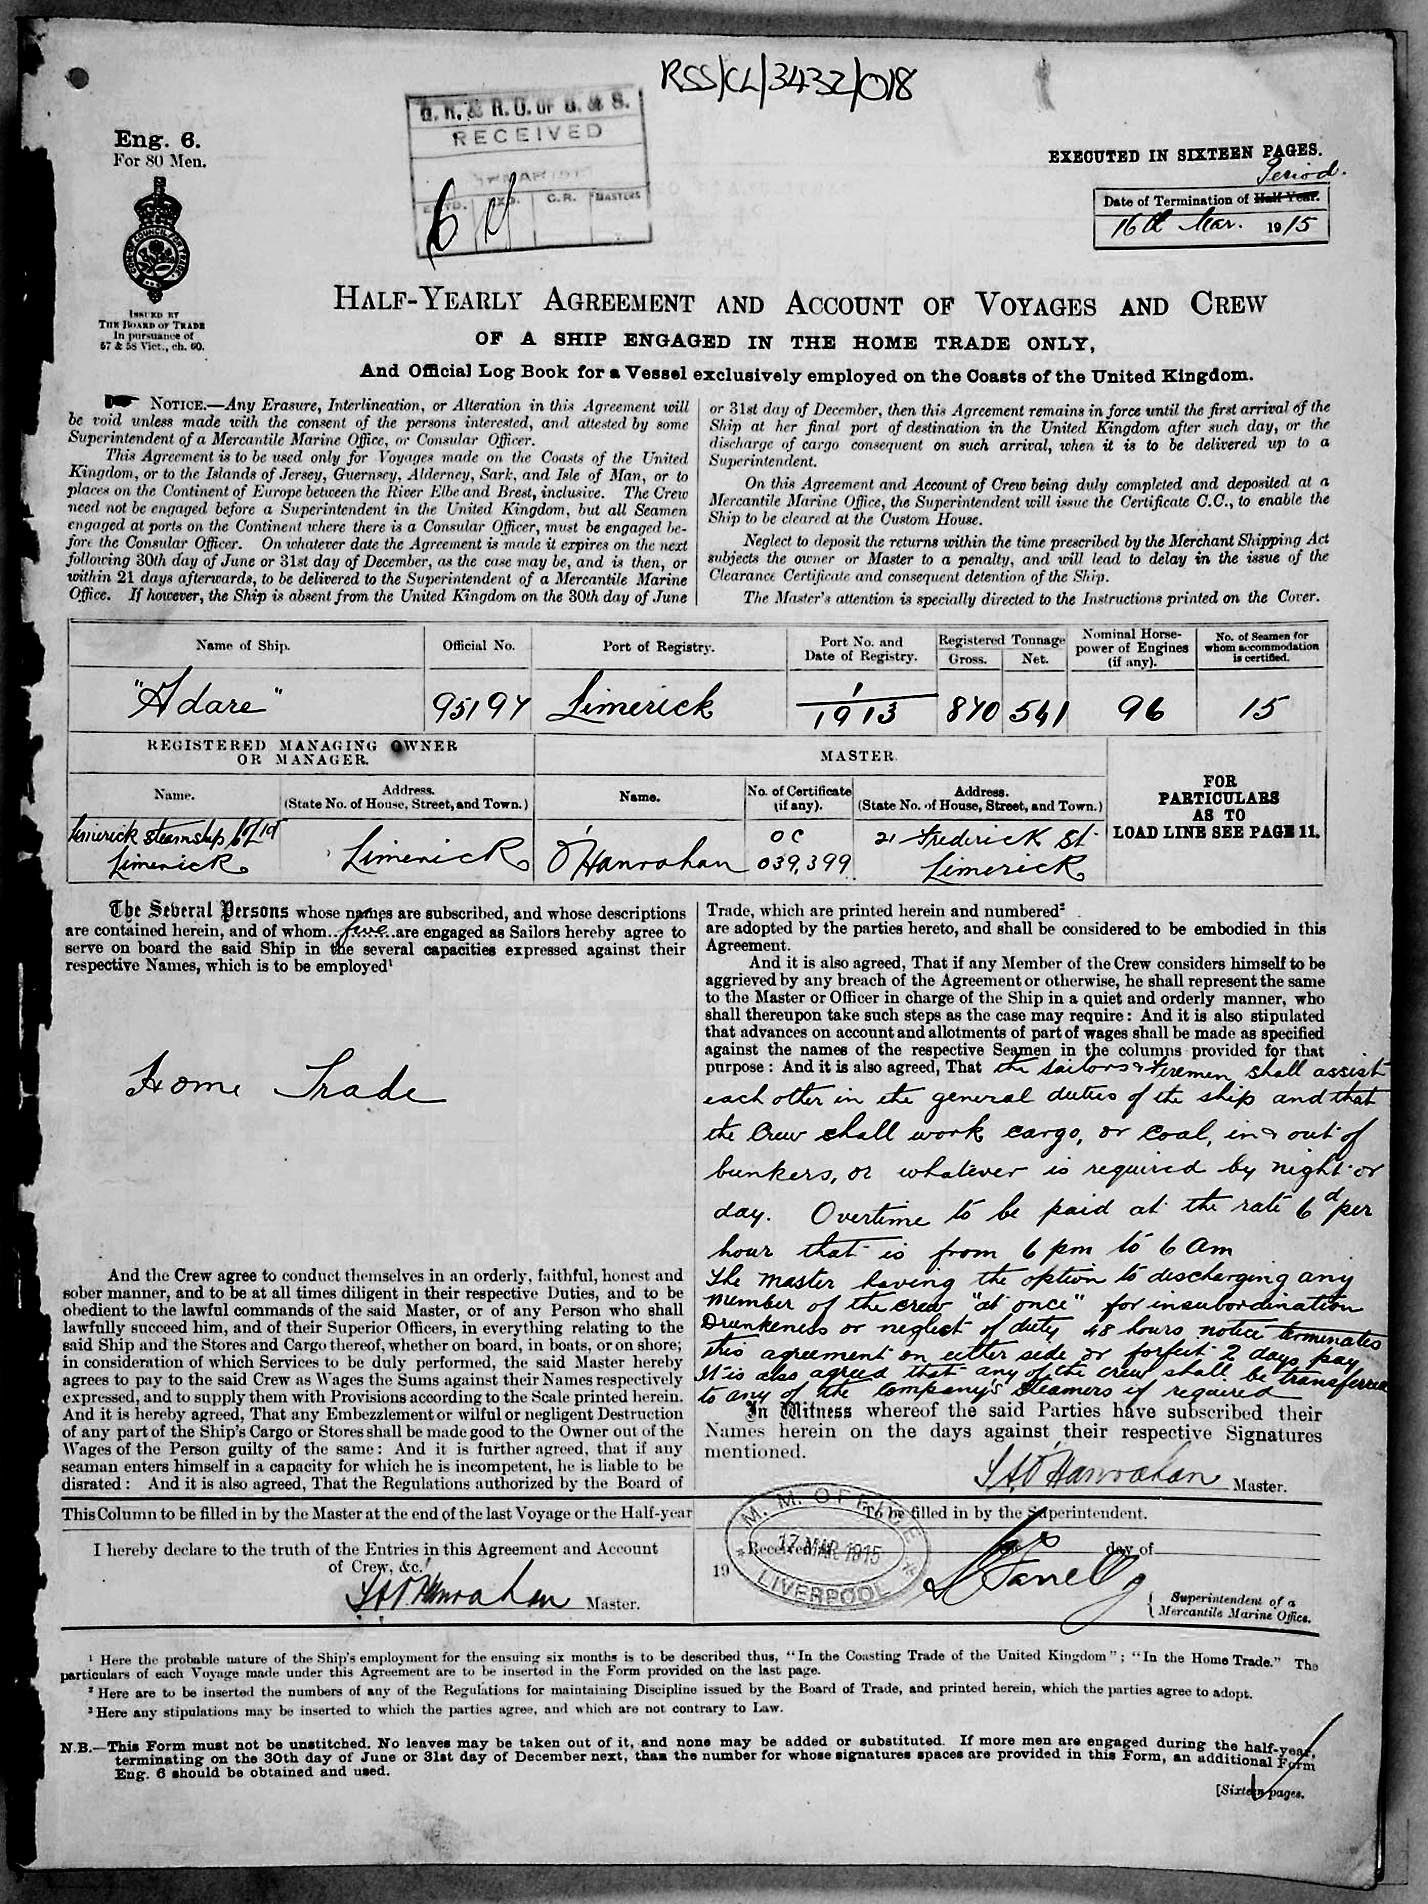 RSS/CL/3432/018
RECEIVED
C.R.
MASTERS
6
Eng. 6.
For 80 Men.
ISSUED BY
THE BOARD OF TRADE
In pursuance of
57 & 58 Vict., ch. 60.
EXECUTED IN SIXTEEN PAGES.
Period.
Date of Termination of Half Year.
16th Mar. 1915
HALF-YEARLY AGREEMENT AND ACCOUNT OF VOYAGES AND CREW
OF A SHIP ENGAGED IN THE HOME TRADE ONLY,
And Official Log Book for a Vessel exclusively employed on the Coasts of the United Kingdom.
NOTICE.—Any Erasure, Interlineation, or Alteration in this Agreement will
be void unless made with the consent of the persons interested, and attested by some
Superintendent of a Mercantile Marine Office, or Consular Officer.
This Agreement is to be used only for Voyages made on the Coasts of the United
Kingdom, or to the Islands of Jersey, Guernsey, Alderney, Sark, and Isle of Man, or to
places on the Continent of Europe between the River Elbe and Brest, inclusive. The Crew
need not be engaged before a Superintendent in the United Kingdom, but all Seamen
engaged at ports on the Continent where there is a Consular Officer, must be engaged be-
fore the Consular Officer. On whatever date the Agreement is made it expires on the next
following 30th day of June or 31st day of December, as the case may be, and is then, or
within 21 days afterwards, to be delivered to the Superintendent of a Mercantile Marine
Office. If however, the Ship is absent from the United Kingdom on the 30th day of June
or 31st day of December, then this Agreement remains in force until the first arrival of the
Ship at her final port of destination in the United Kingdom after such day, or the
discharge of cargo consequent on such arrival, when it is to be delivered up to a
Superintendent.
On this Agreement and Account of Crew being duly completed and deposited at a
Mercantile Marine Office, the Superintendent will issue the Certificate C.C., to enable the
Ship to be cleared at the Custom House.
Neglect to deposit the returns within the time prescribed by the Merchant Shipping Act
subjects the owner or Master to a penalty, and will lead to delay in the issue of the
Clearance Certificate and consequent detention of the Ship.
The Master's attention is specially directed to the Instructions printed on the Cover.
Name of Ship. Official No. Port of Registry. Port No. and Date of Registry. Registered Tonnage Gross. Net. Nominal Horse-power of Engines (if any). No. of Seamen for whom accommodation is certified.
"Adare" 95197 Limerick 1/1913 870 541 96 15
REGISTERED MANAGING OWNER
OR MANAGER.
MASTER.
Name. Address. (State No. of House, Street, and Town.) Name. No. of Certificate (if any). Address. (State No. of House, Street, and Town.)
FOR
PARTICULARS
AS TO
LOAD LINE SEE PAGE 11.
Limerick Steamship Co Ltd
Limerick
Limerick
O'Hanrahan
OC
039,399
21 Frederick St
Limerick
The Several Persons whose names are subscribed, and whose descriptions
are contained herein, and of whom five are engaged as Sailors hereby agree to
serve on board the said Ship in the several capacities expressed against their
respective Names, which is to be employed¹
Home Trade
And the Crew agree to conduct themselves in an orderly, faithful, honest and
sober manner, and to be at all times diligent in their respective Duties, and to be
obedient to the lawful commands of the said Master, or of any Person who shall
lawfully succeed him, and of their Superior Officers, in everything relating to the
said Ship and the Stores and Cargo thereof, whether on board, in boats, or on shore;
in consideration of which Services to be duly performed, the said Master hereby
agrees to pay to the said Crew as Wages the Sums against their Names respectively
expressed, and to supply them with Provisions according to the Scale printed herein.
And it is hereby agreed, That any Embezzlement or wilful or negligent Destruction
of any part of the Ship's Cargo or Stores shall be made good to the Owner out of the
Wages of the Person guilty of the same: And it is further agreed, that if any
seaman enters himself in a capacity for which he is incompetent, he is liable to be
disrated: And it is also agreed, That the Regulations authorized by the Board of
Trade, which are printed herein and numbered²
are adopted by the parties hereto, and shall be considered to be embodied in this
Agreement.
And it is also agreed, That if any Member of the Crew considers himself to be
aggrieved by any breach of the Agreement or otherwise, he shall represent the same
to the Master or Officer in charge of the Ship in a quiet and orderly manner, who
shall thereupon take such steps as the case may require: And it is also stipulated
that advances on account and allotments of part of wages shall be made as specified
against the names of the respective Seamen in the columns provided for that
purpose: And it is also agreed, That the sailors & Firemen shall assist
each other in the general duties of the ship and that
the Crew shall work cargo, or coal, in & out of
bunkers, or whatever is required by night or
day. Overtime to be paid at the rate 6d per
hour that is from 6 pm to 6 am
The Master having the option to discharging any
member of the crew "at once" for insubordination
Drunkeness or neglect of duty 48 hours notice terminates
this agreement on either side or forfeit 2 days pay
It is also agreed that any of the crew shall be transferred
to any of the Company's Steamers if required
In Witness whereof the said Parties have subscribed their
Names herein on the days against their respective Signatures
mentioned.
O'Hanrahan Master.
This Column to be filled in by the Master at the end of the last Voyage or the Half-year
I hereby declare to the truth of the Entries in this Agreement and Account
of Crew, &c.
O'Hanrahan Master.
To be filled in by the Superintendent.
Received day of
19
M. M. OFFICE
17 MAR 1915
LIVERPOOL
Superintendent of a
Mercantile Marine Office.
¹ Here the probable nature of the Ship's employment for the ensuing six months is to be described thus, "In the Coasting Trade of the United Kingdom"; "In the Home Trade." The
particulars of each Voyage made under this Agreement are to be inserted in the Form provided on the last page.
² Here are to be inserted the numbers of any of the Regulations for maintaining Discipline issued by the Board of Trade, and printed herein, which the parties agree to adopt.
³ Here any stipulations may be inserted to which the parties agree, and which are not contrary to Law.
N.B.—This Form must not be unstitched. No leaves may be taken out of it, and none may be added or substituted. If more men are engaged during the half-year,
terminating on the 30th day of June or 31st day of December next, than the number for whose signatures spaces are provided in this Form, an additional Form
Eng. 6 should be obtained and used.
[Sixteen pages.